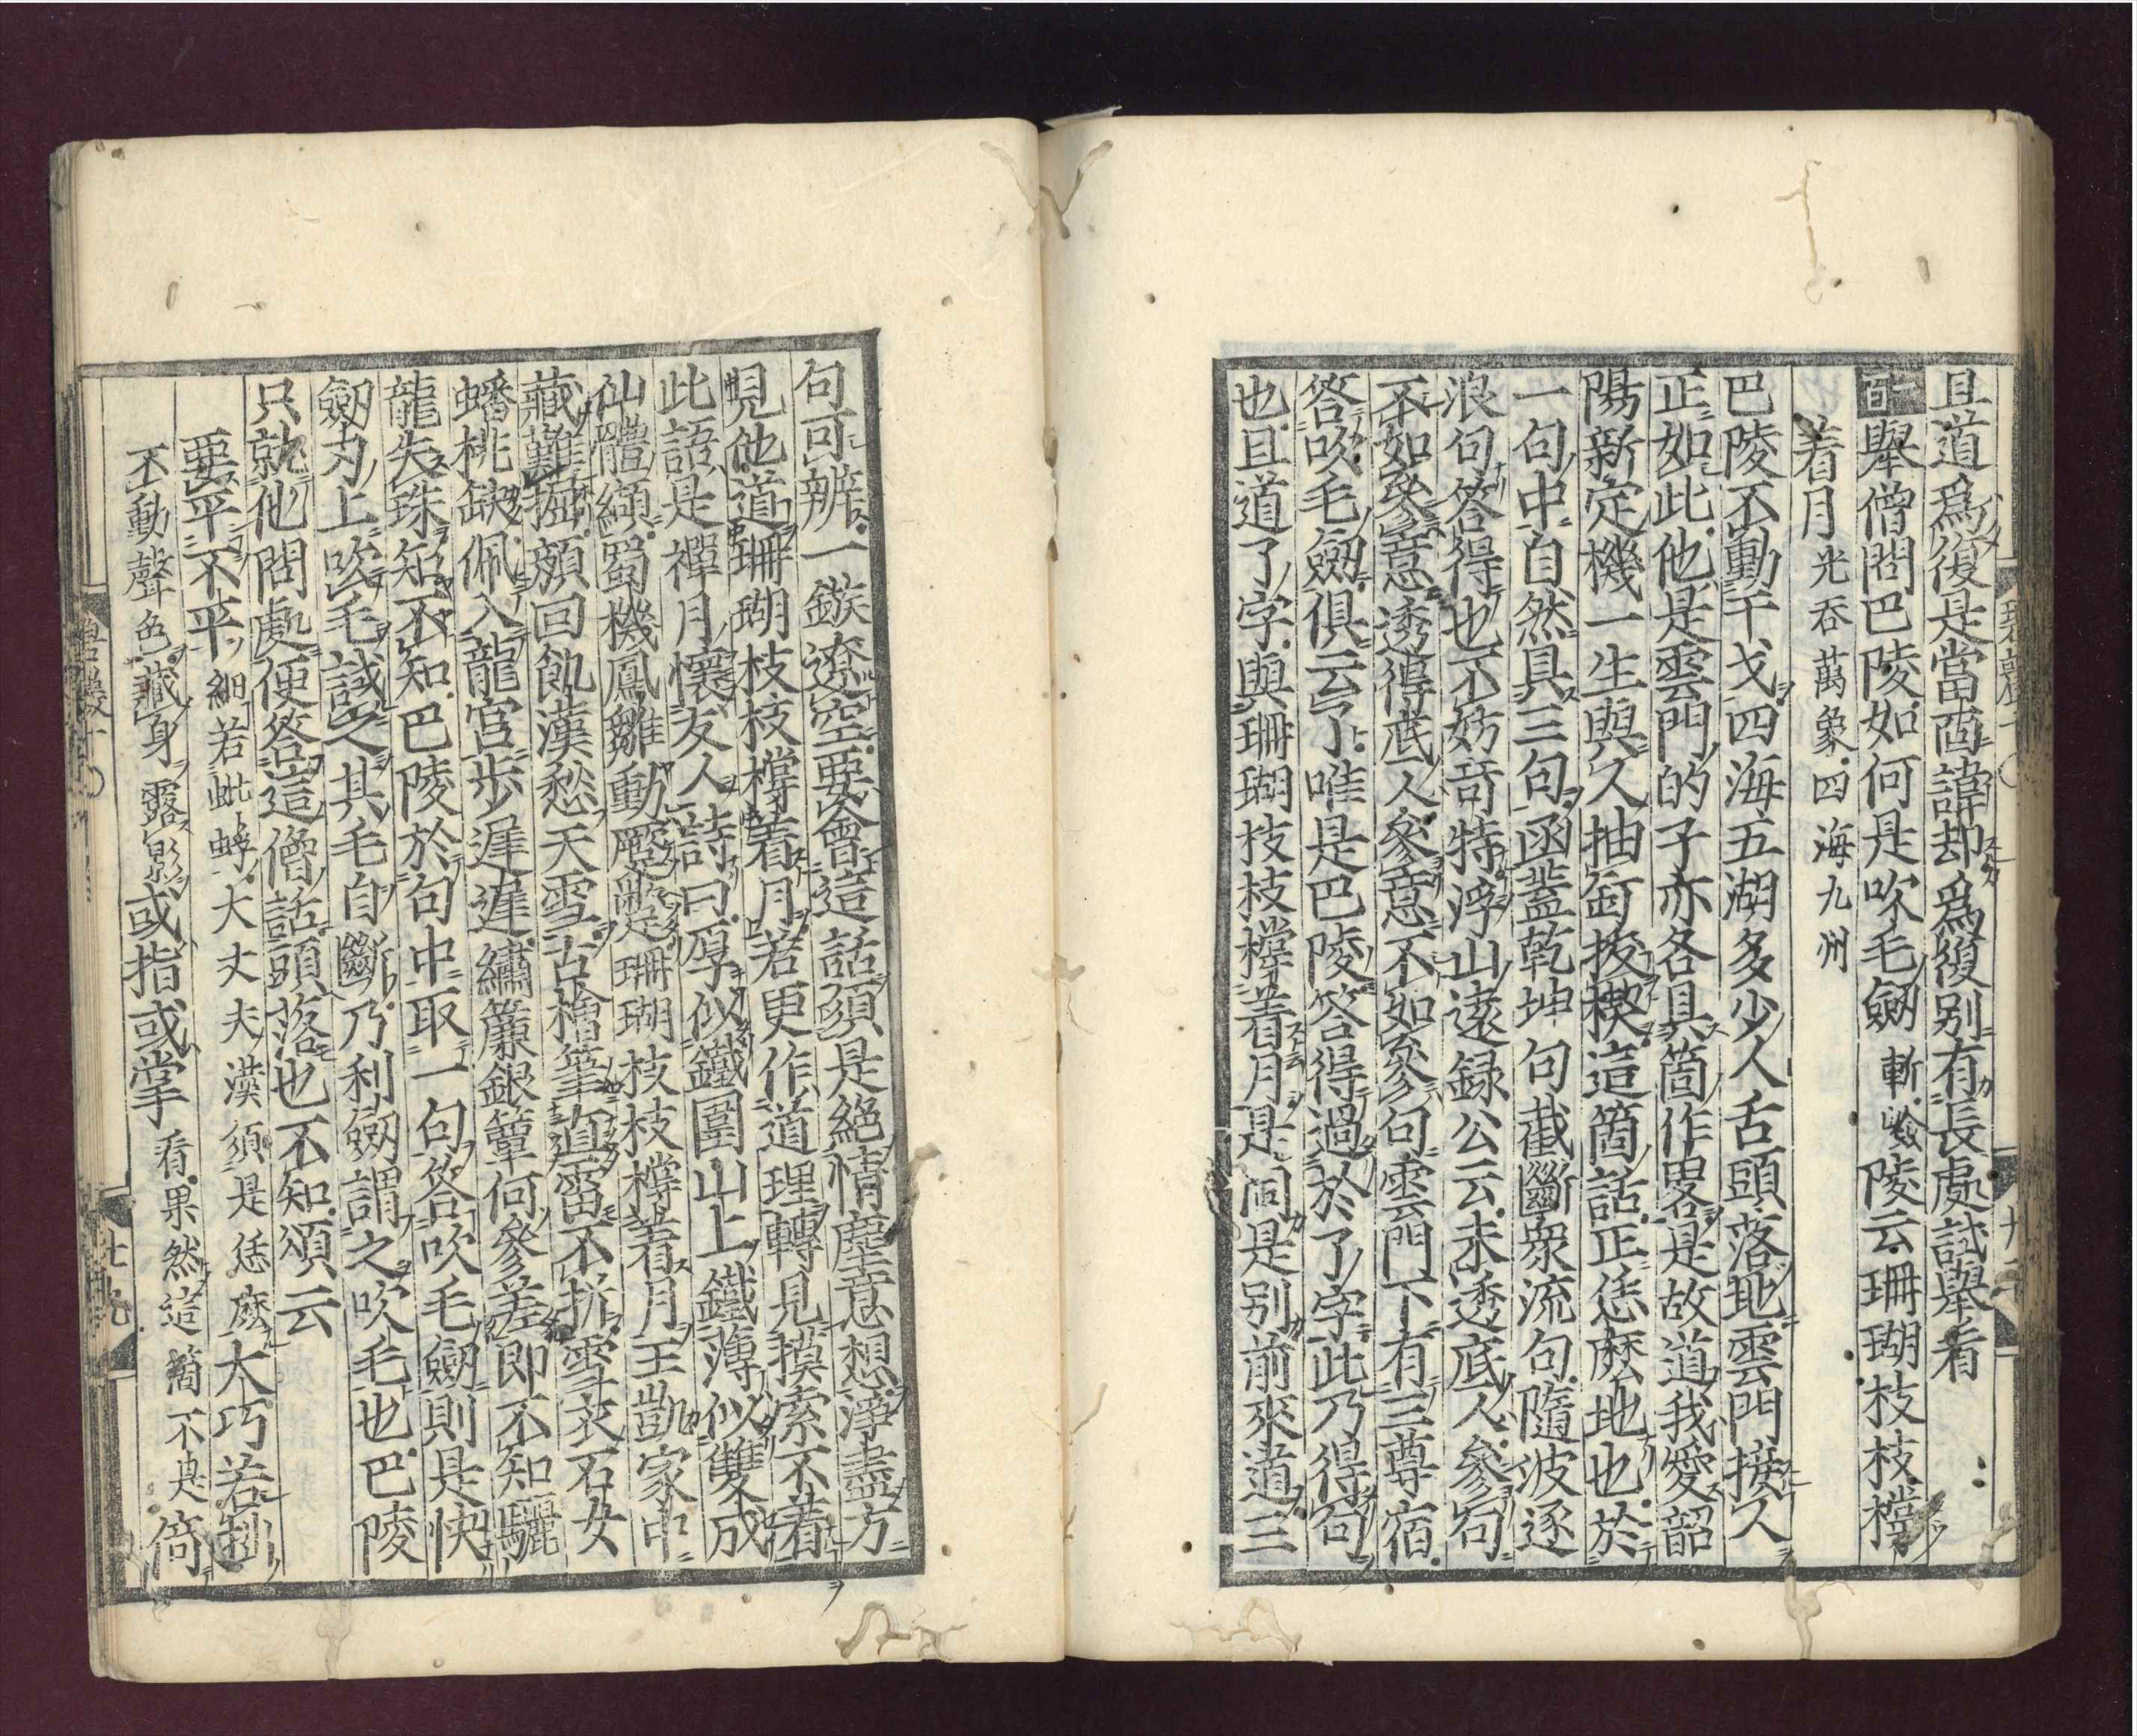 且道爲復是當面諱却爲復別有長處試舉看
一百 舉僧問巴陵如何是吹毛劔斬嶮陵云珊瑚枝枝撐
着月光吞萬象四海九州
巴陵不動干戈四海五湖多少人舌頭落地雲門接人
正如此他是雲門的子亦各具箇作畧是故道我愛韶
陽新定機一生與人抽釘拔楔這箇話正恁麽地也於
一句中自然具三句函蓋乾坤句截斷衆流句隨波逐
浪句答得也不妨奇特浮山遠録公云未透底人參句
不如參意透得底人參意不如參句雲門下有三尊宿
答吹毛劔俱云了唯是巴陵答得過於了字此乃得句
也且道了字與珊瑚枝枝撐着月是同是別前來道三
句可辨一鏃遼空要會這話須是絕情塵意想淨盡方
見他道珊瑚枝枝撐着月若更作道理轉見摸索不着
此語是禪月懷友人詩曰厚似鐵圍山上鐵薄似雙成
仙體纈蜀機鳳雛動蹩躠珊瑚枝枝撐着月王凱家中
藏難掘顏回飢漢愁天雪古檜筆直雷不折雪衣石女
蟠桃缺佩入龍宮步遲遲繡簾銀簟何參差即不知驪
龍失珠知不知巴陵於句中取一句答吹毛劔則是快
劔刃上吹毛試之其毛自斷乃利劔謂之吹毛也巴陵
只就他問處便答這僧話頭落也不知頌云
要平不平細若蚍蜉大丈夫漢須是恁麽大巧若拙
不動聲色藏身露影或指或掌看果然這箇不是倚